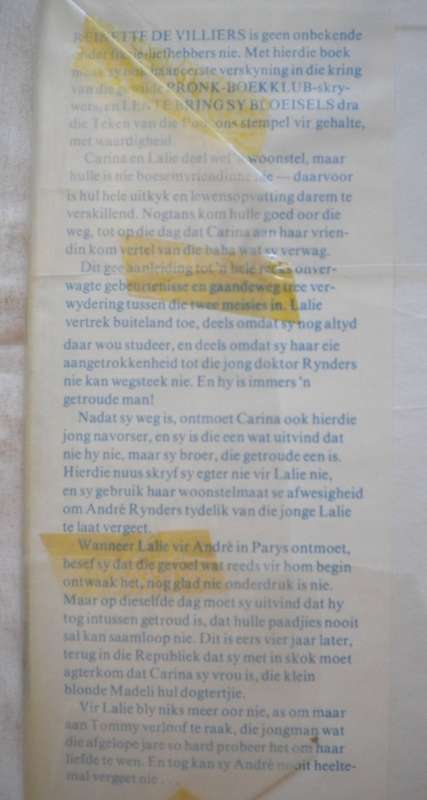 REINETTE DE VILLIERS is geen onbekende
liefhebbers nie. Met hierdie boek
maak sy verskyning in die kring
van die PRONK-BOEKKLUB-skry-
wers, en LENTE BRING SY BLOEISELS dra
die Teken van die stempel vir gehalte,
met waardigheid.
Carina en Lalie deel wel 'n woonstel, maar
hulle is nie boesemvriendinne nie — daarvoor
is hul hele uitkyk en lewensopvatting darem te
verskillend. Nogtans kom hulle goed oor die
weg, tot op die dag dat Carina aan haar vrien-
din kom vertel van die baba wat sy verwag.
Dit gee aanleiding tot 'n hele reeks onver-
wagte gebeurtenisse en gaandeweg tree ver-
wydering tussen die twee meisies in. Lalie
vertrek buiteland toe, deels omdat sy nog altyd
daar wou studeer, en deels omdat sy haar eie
aangetrokkenheid tot die jong doktor Rynders
nie kan wegsteek nie. En hy is immers 'n
getroude man!
Nadat sy weg is, ontmoet Carina ook hierdie
jong navorser, en sy is die een wat uitvind dat
nie hy nie, maar sy broer, die getroude een is.
Hierdie nuus skryf sy egter nie vir Lalie nie,
en sy gebruik haar woonstelmaat se afwesigheid
om André Rynders tydelik van die jonge Lalie
te laat vergeet.
Wanneer Lalie vir André in Parys ontmoet,
besef sy dat die gevoel wat reeds vir hom begin
ontwaak het, nog glad nie onderdruk is nie.
Maar op dieselfde dag moet sy uitvind dat hy
tog intussen getroud is, dat hulle paadjies nooit
sal kan saamloop nie. Dit is eers vier jaar later,
terug in die Republiek dat sy met 'n skok moet
agterkom dat Carina sy vrou is, die klein
blonde Madeli hul dogtertjie.
Vir Lalie bly niks meer oor nie, as om maar
aan Tommy verloof te raak, die jongman wat
die afgelope jare so hard probeer het om haar
liefde te wen. En tog kan sy André nooit heelte-
mal vergeet nie . . .